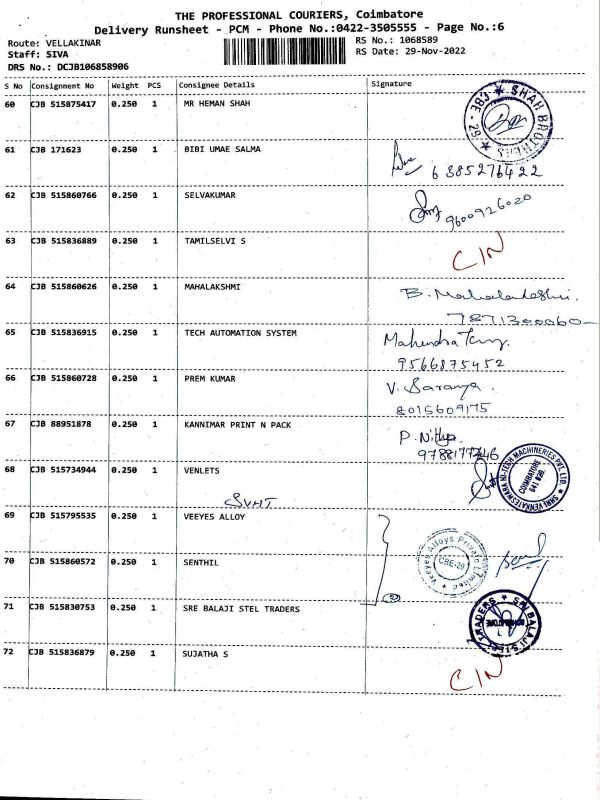 THE PROFESSIONAL COURIERS, Coimbatore
Delivery Runsheet - PCM - Phone No.:0422-3505555 - Page No.:6
Route: VELLAKINAR
RS No.: 1068589
Staff: SIVA
RS Date: 29-Nov-2022
DRS No.: DCJB106858906
S No Consignment No Weight PCS Consignee Details Signature
60 CJB 515875417 0.250 1 MR HEMAN SHAH
SHAH BROTHERS ★ CBE - 29 ★
61 CJB 171623 0.250 1 BIBI UMAE SALMA
6385276422
62 CJB 515860766 0.250 1 SELVAKUMAR
9600926020
63 CJB 515836889 0.250 1 TAMILSELVI S
CIN
64 CJB 515860626 0.250 1 MAHALAKSHMI
B. Mahalakshmi.
7871300060
65 CJB 515836915 0.250 1 TECH AUTOMATION SYSTEM
9566875452
66 CJB 515860728 0.250 1 PREM KUMAR
V. Saranya.
8015609175
67 CJB 88951878 0.250 1 KANNIMAR PRINT N PACK
P. Nithya
68 CJB 515734944 0.250 1 VENLETS
SVHT
SHRI VENKATESWARA HI-TECH MACHINERIES PVT. LTD. ★
COIMBATORE
69 CJB 515795535 0.250 1 VEEYES ALLOY
Veeyes Alloys Private Limited
CBE-29
70 CJB 515860572 0.250 1 SENTHIL
71 CJB 515830753 0.250 1 SRE BALAJI STEL TRADERS
SRI BALAJI STEEL TRADERS
72 CJB 515836879 0.250 1 SUJATHA S
CIN